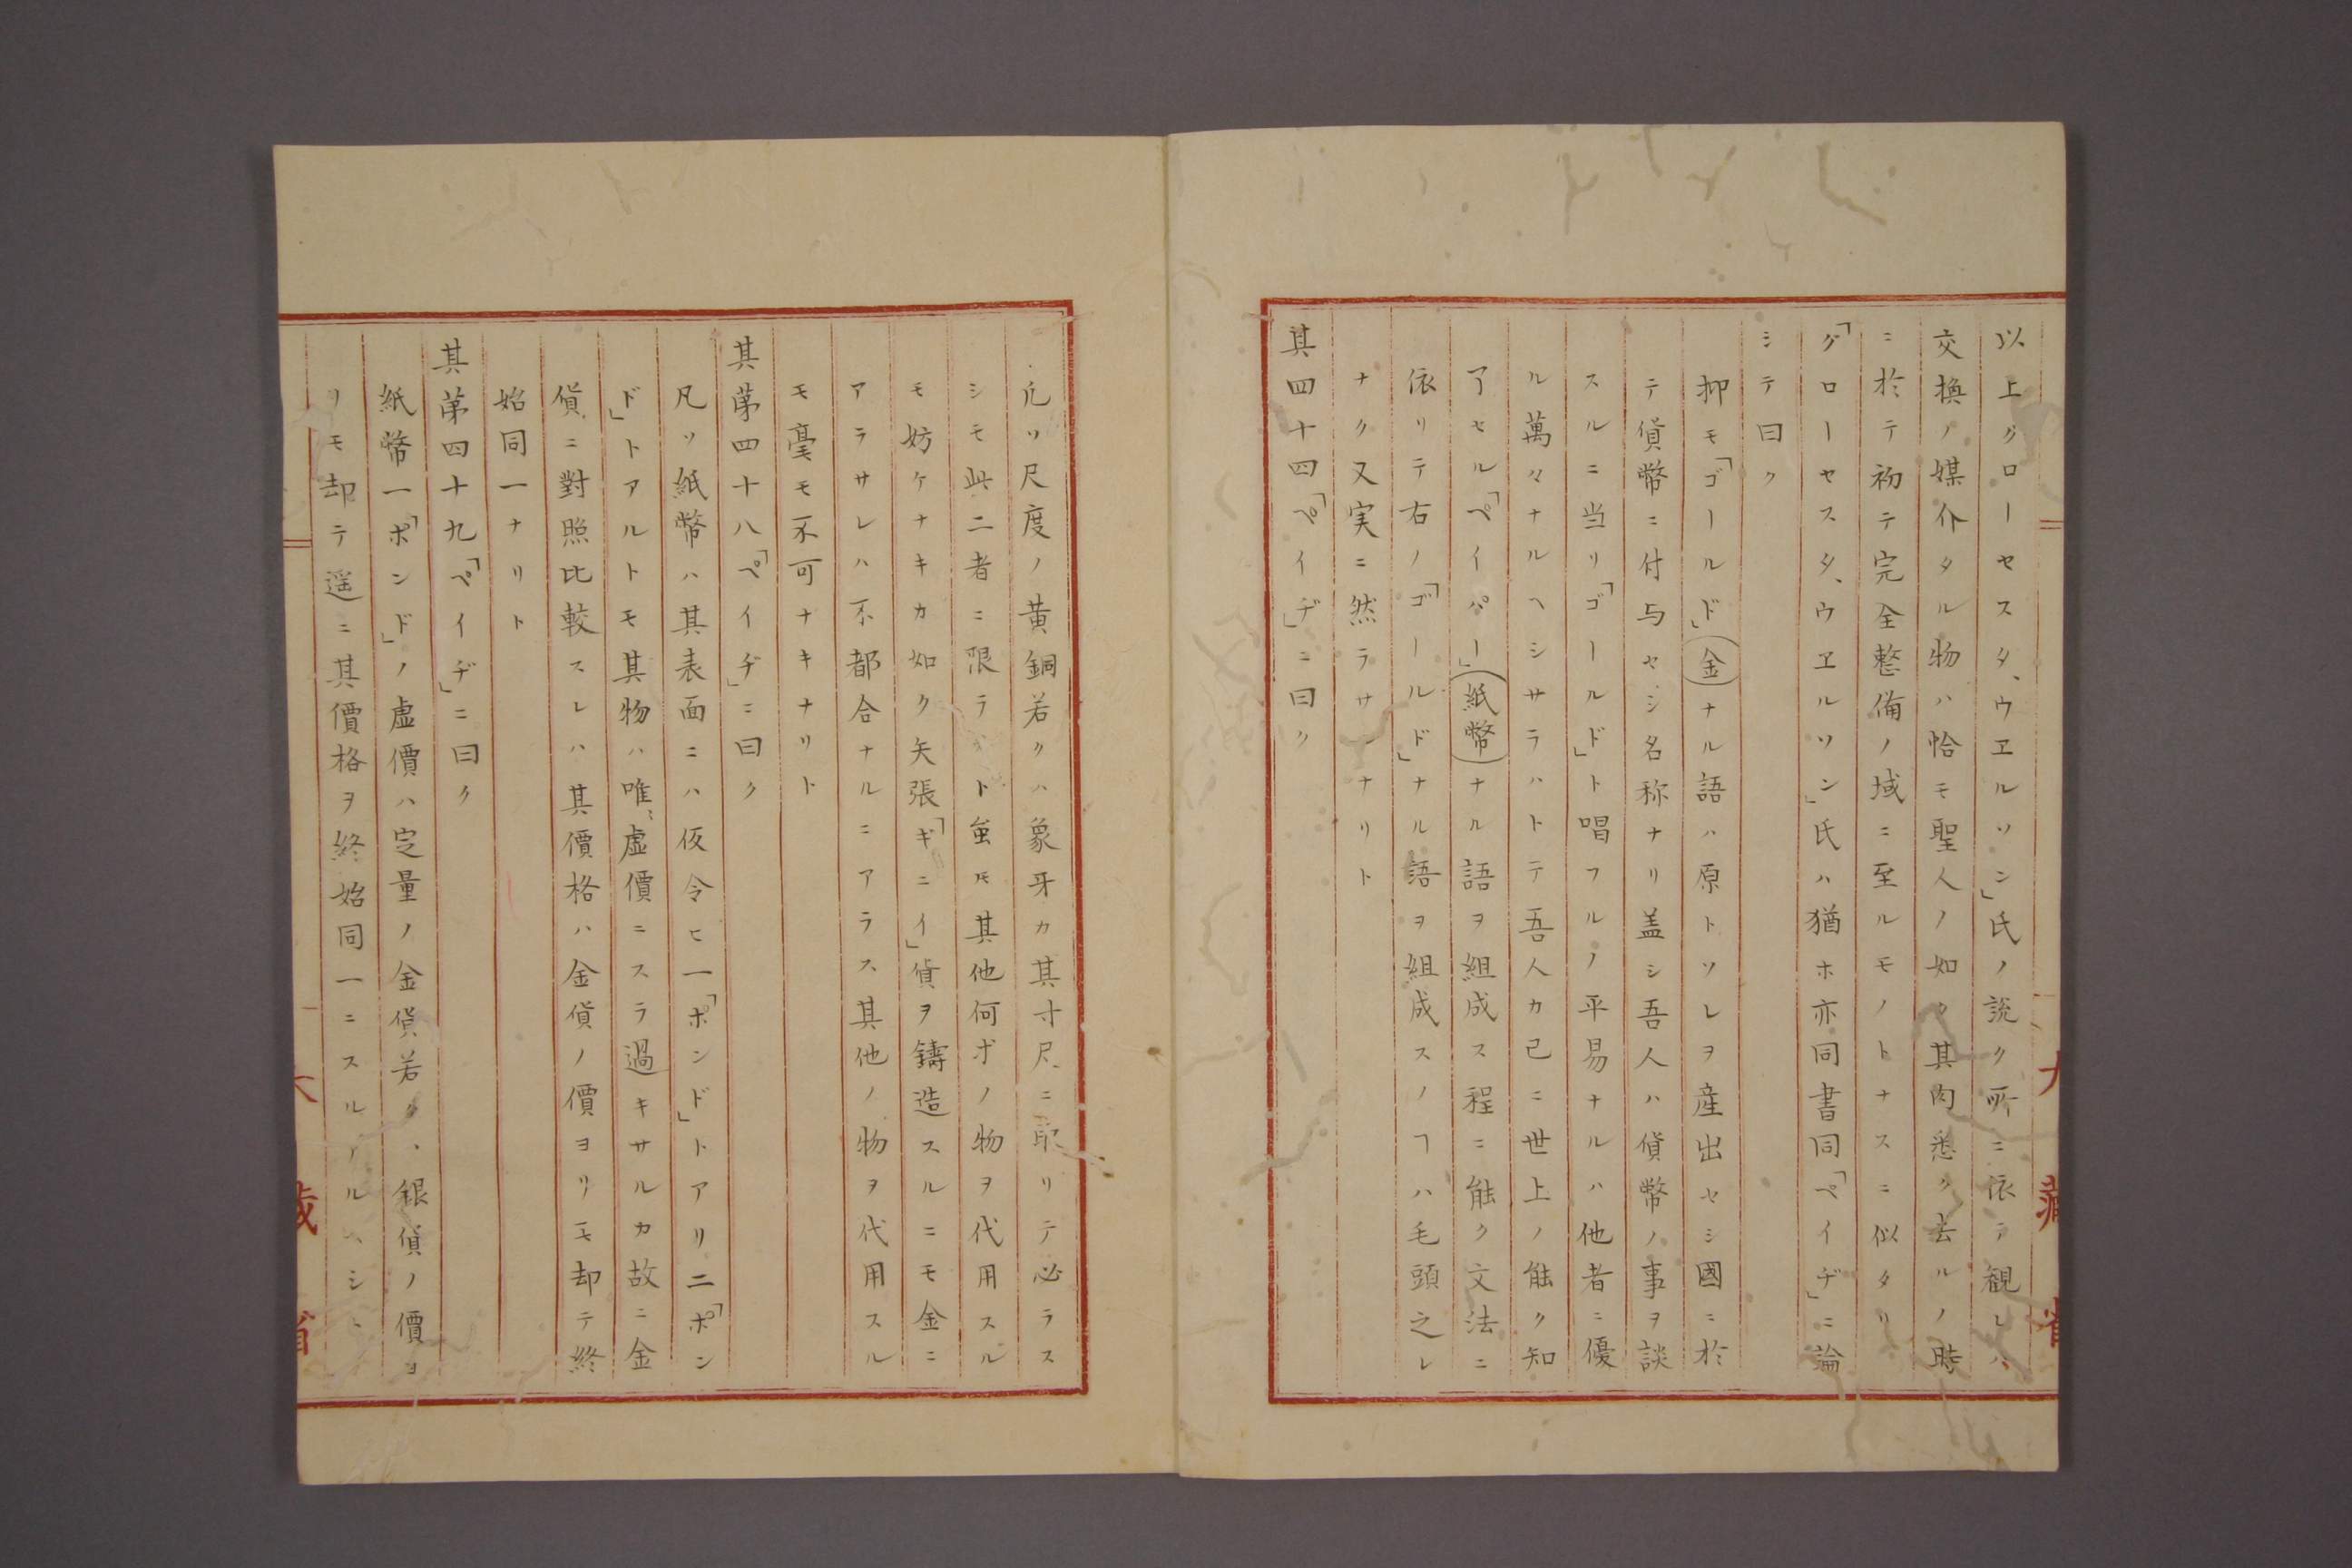 以上グローセスタ、ウヱルソン」氏ノ説ク所ニ依テ観レハ
交換ノ媒介タル物ハ恰モ聖人ノ如ク其肉悉ク去ルノ時
ニ於テ初テ完全整備ノ域ニ至ルモノトナスニ似タリ
「グローセスタ、ウヱルソン」氏ハ猶ホ亦同書同「ペイヂ」ニ論
シテ曰ク
抑モ「ゴールド」(金)ナル語ハ原トソレヲ産出セシ國ニ於
テ貨幣ニ付与セシ名称ナリ盖シ吾人ハ貨幣ノ事ヲ談
スルニ当リ「ゴールド」ト唱フルノ平易ナルハ他者ニ優
ル萬々ナルヘシサラハトテ吾人カ已ニ世上ノ能ク知
了セル「ペイパー」(紙幣)ナル語ヲ組成ス程ニ能ク文法ニ
依リテ右ノ「ゴールド」ナル語ヲ組成スノヿハ毛頭之レ
ナク又実ニ然ラサンナリト
其四十四「ペイヂ」ニ曰ク
凡ソ尺度ノ黄銅若クハ象牙カ其寸尺ニ取リテ必ラス
シモ此二者ニ限ラズト虽𪜈其他何ホノ物ヲ代用スル
モ妨ケナキカ如ク矢張「ギニイ」貨ヲ鑄造スルニモ金ニ
アラサレハ不都合ナルニアラス其他ノ物ヲ代用スル
モ毫モ不可ナキナリト
其第四十八「ペイヂ」ニ曰ク
凡ソ紙幣ハ其表面ニハ仮令ヒ一「ポンド」トアリ二「ポン
ド」トアルトモ其物ハ唯、虚價ニスラ過キサルカ故ニ金
貨ニ對照比較スレハ其價格ハ金貨ノ價ヨリモ却テ終
始同一ナリト
其第四十九「ペイヂ」ニ曰ク
紙幣一「ポンド」ノ虚價ハ定量ノ金貨若クハ銀貨ノ價ヨ
リモ却テ遥ニ其價格ヲ終始同一ニスルアルヘシト
大藏省